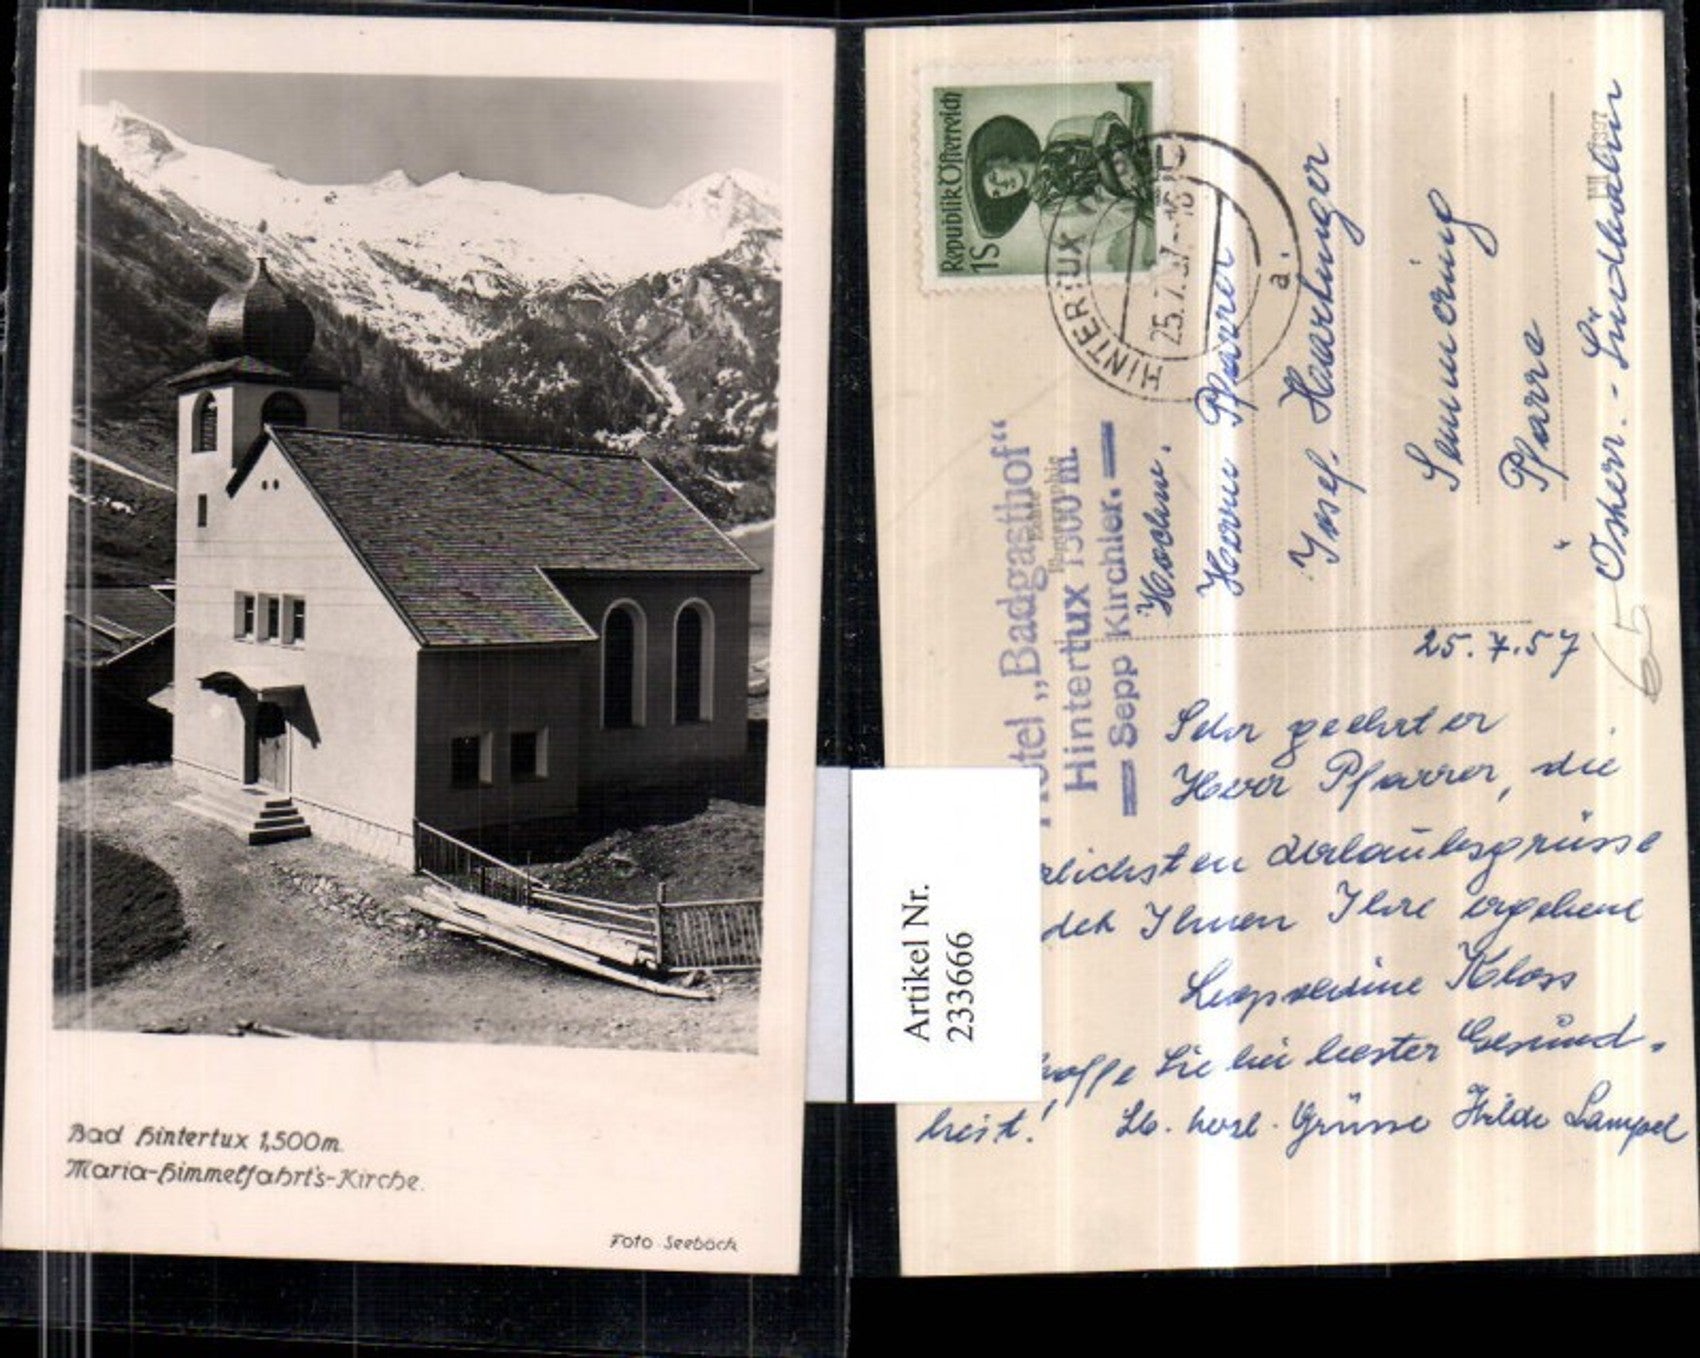 Bad Hintertux 1,500m.
Maria-Himmelfahrt's-Kirche.
Foto Seeböck
Republik Österreich
1S
HINTERTUX
25.7.57-18
a
Hotel „Badgasthof“
Hintertux 1500 m.
Sepp Kirchler.
Hochw.
Herrn Pfarrer
Josef
Semmering
Pfarre
Österr. -
65
25.7.57
Sehr geehrter
Herr Pfarrer, die
rzlichsten Urlaubsgrüsse
det Ihnen Ihre ergebene
Leopoldine Kloss
hoffe Sie bei bester Gesund-
heit! Lb. herzl. Grüsse Hilde Lampel
Artikel Nr.
233666